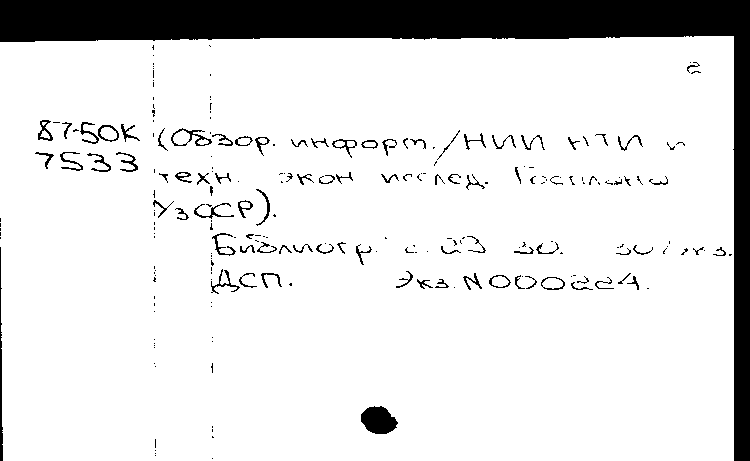 2
87-50К (Обзор. информ./НИИ НТИ и
7533 техн. экон исслед. Госплана
УзССР).
Библиогр. с. 23 30. экз.
ДСП. Экз. N000224.